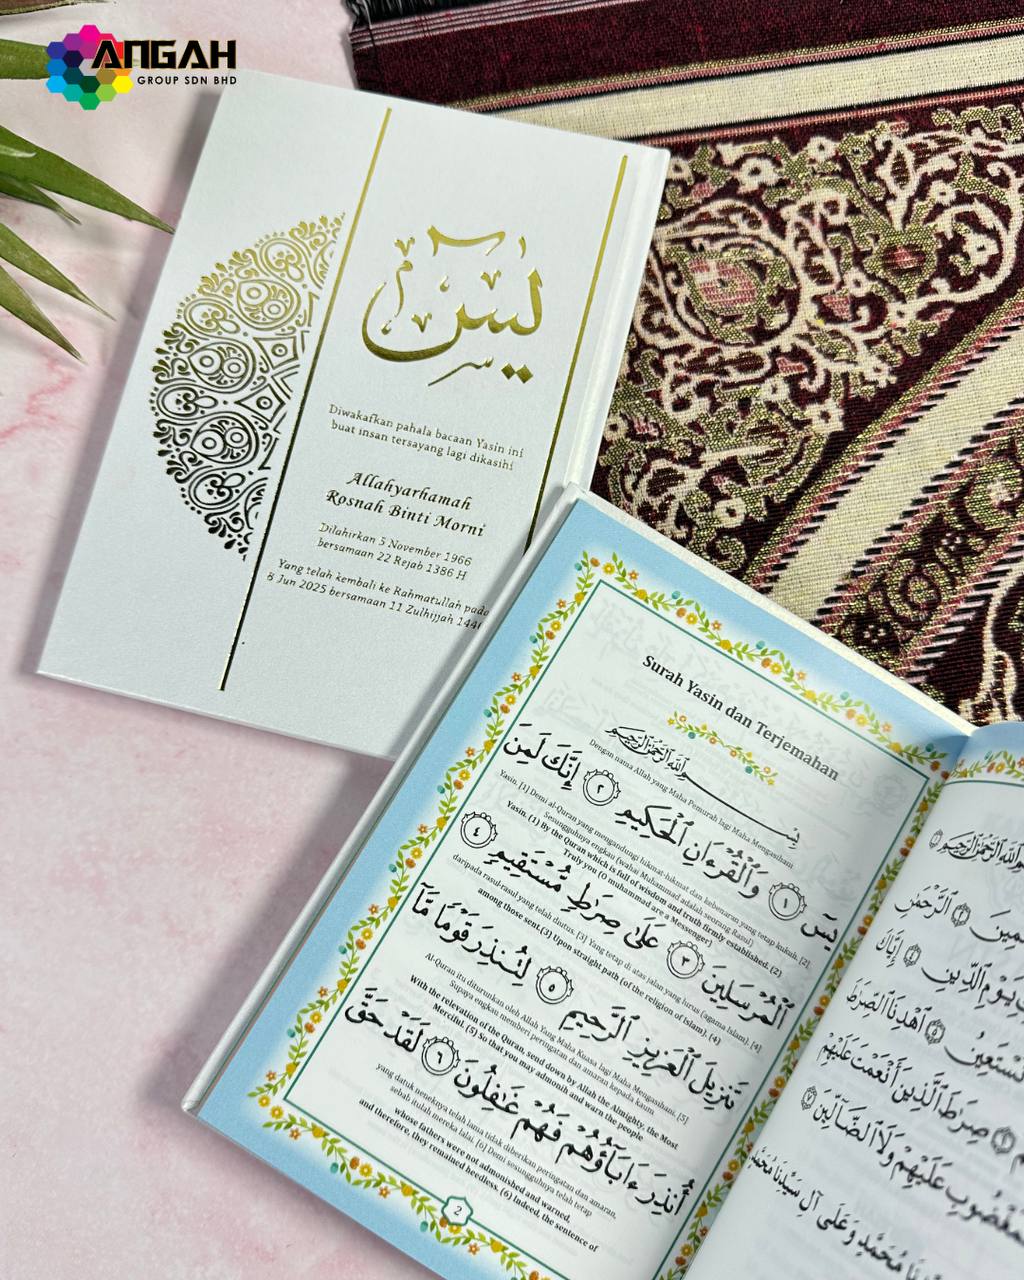 ANGAH
GROUP SDN BHD
يس
Diwakafkan pahala bacaan Yasin ini
buat insan tersayang lagi dikasihi
Allahyarhamah
Rosnah Binti Morni
Dilahirkan 5 November 1966
bersamaan 22 Rejab 1386 H
Yang telah kembali ke Rahmatullah pada
8 Jun 2025 bersamaan 11 Zulhijjah 144
Surah Yasin dan Terjemahan
بِسْمِ اللَّهِ الرَّحْمَٰنِ الرَّحِيمِ
Dengan nama Allah yang Maha Pemurah lagi Maha Mengasihani
يسٓ ١ وَٱلْقُرْءَانِ ٱلْحَكِيمِ ٢ إِنَّكَ لَمِنَ
Yasin. [1] Demi al-Quran yang mengandungi hikmat-hikmat dan kebenaran yang tetap kukuh. [2]
Sesungguhnya engkau (wahai Muhammad adalah seorang Rasul)
Yasin. (1) By the Quran which is full of wisdom and truth firmly established. (2)
Truly you (O muhammad are a Messenger)
ٱلْمُرْسَلِينَ ٣ عَلَىٰ صِرَٰطٍ مُّسْتَقِيمٍ ٤
daripada rasul-rasul yang telah diutus. [3] Yang tetap di atas jalan yang lurus (agama Islam). [4]
among those sent.(3) Upon straight path (of the religion of Islam). (4)
تَنزِيلَ ٱلْعَزِيزِ ٱلرَّحِيمِ ٥ لِتُنذِرَ قَوْمًا مَّآ
Al-Quran itu diturunkan oleh Allah Yang Maha Kuasa lagi Maha Mengasihani. [5]
Supaya engkau memberi peringatan dan amaran kepada kaum
With the relevation of the Quran, send down by Allah the Almighty, the Most
Merciful. (5) So that you may admonih and warn the people
أُنذِرَ ءَابَآؤُهُمْ فَهُمْ غَٰفِلُونَ ٦ لَقَدْ حَقَّ
yang datuk neneknya telah lama tidak diberikan peringatan dan amaran,
sebab itulah mereka lalai. [6] Demi sesungguhnya telah tetap
whose fathers were not admonished and warned,
and therefore, they remained heedless. (6) Indeed, the sentence of
2
ٱللَّهِ ٱلرَّحْمَٰنِ ٱلرَّحِيمِ
ٱلرَّحْمَٰنِ
يَوْمِ ٱلدِّينِ ٤ إِيَّاكَ
نَسْتَعِينُ ٥ ٱهْدِنَا ٱلصِّرَٰطَ
صِرَٰطَ ٱلَّذِينَ أَنْعَمْتَ عَلَيْهِمْ
ٱلْمَغْضُوبِ عَلَيْهِمْ وَلَا ٱلضَّآلِّينَ ٧
مُحَمَّدٍ وَعَلَى آلِ سَيِّدِنَا مُحَمَّدٍ